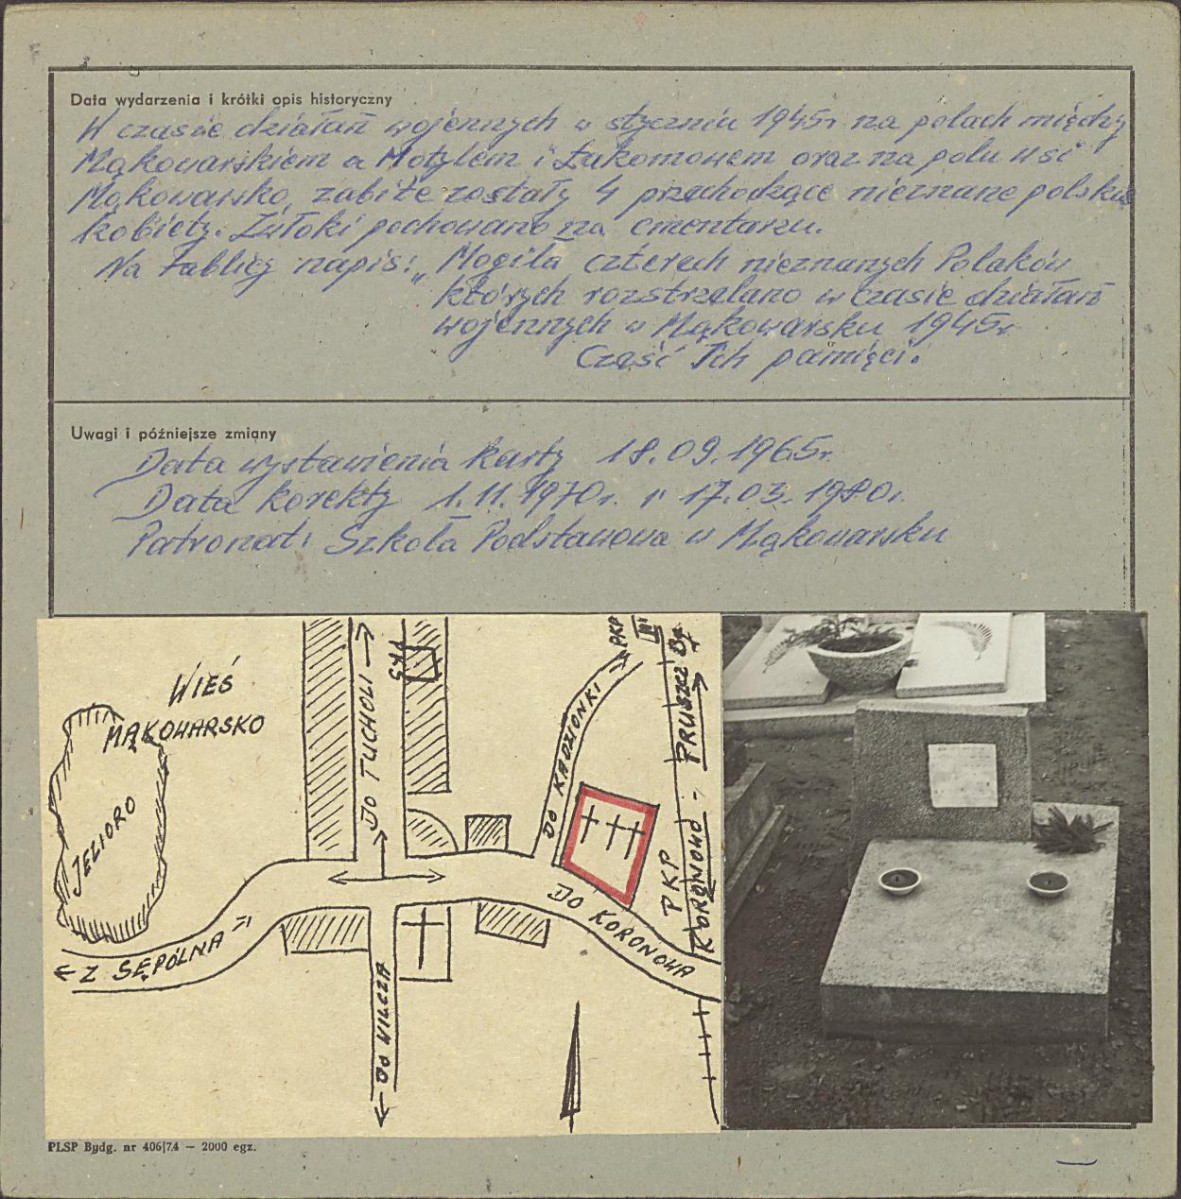 Data wydarzenia i krótki opis historyczny
W czasie działań wojennych w styczniu 1945r na polach między
Mąkowarskiem a Motylem i Łukomowem oraz na polu wsi
Mąkowarsko, zabite zostały 4 przechodzące nieznane polskie
kobiety. Zwłoki pochowano na cmentarzu.
Na tablicy napis: „Mogiła czterech nieznanych Polaków
których rozstrzelano w czasie działań
wojennych w Mąkowarsku 1945r
Cześć Ich pamięci.
Uwagi i późniejsze zmiany
Data wystawienia karty 18.09.1965r.
Data korekty 1.11.1970r. i 17.03.1980r.
Patronat: Szkoła Podstawowa w Mąkowarsku
WIEŚ
MĄKOWARSKO
JEZIORO
← Z SĘPÓLNA
DO TUCHOLI →
DO KADZIONKI
PKP
DO KORONOWA
PKP
KORONOWO - PRUSZCZ
DO WILCZA
PLSP Bydg. nr 406|74 — 2000 egz.